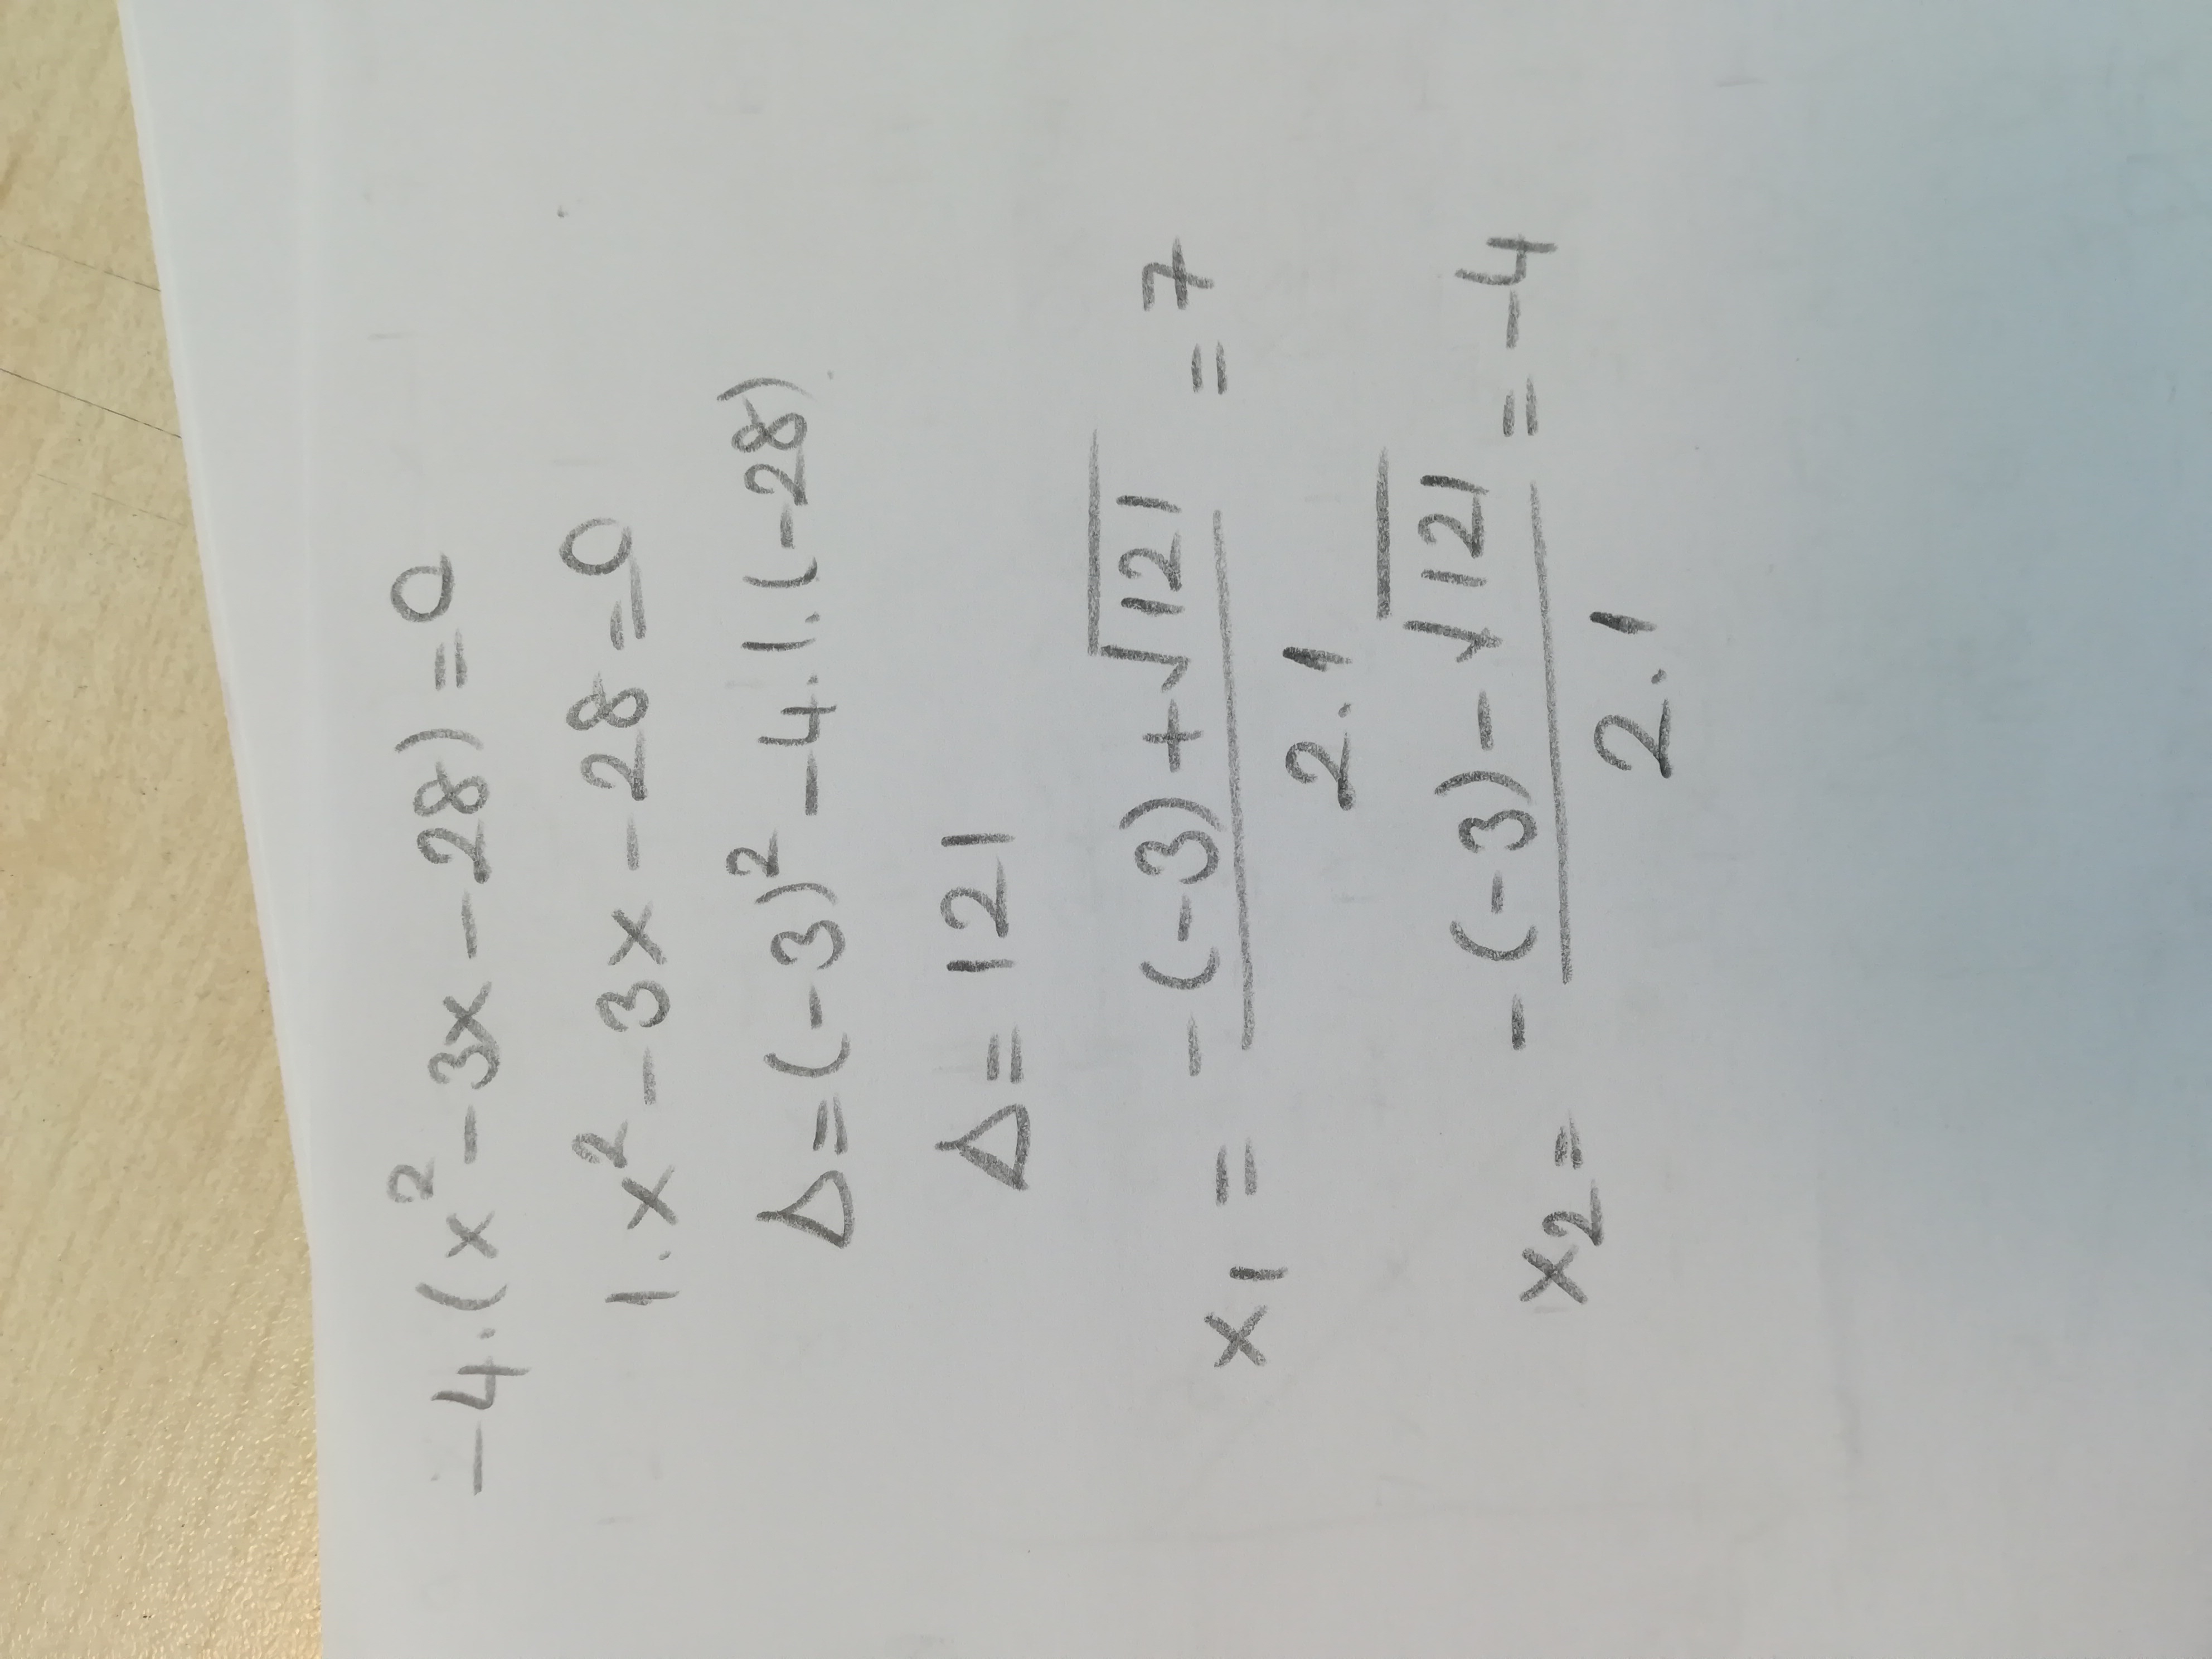 -4.(x²-3x-28)=0
1.x²-3x-28=0
Δ=(-3)²-4.1.(-28)
Δ=121
x1 = -(-3)+√121 / 2.1 = 7
x2 = -(-3)-√121 / 2.1 = -4